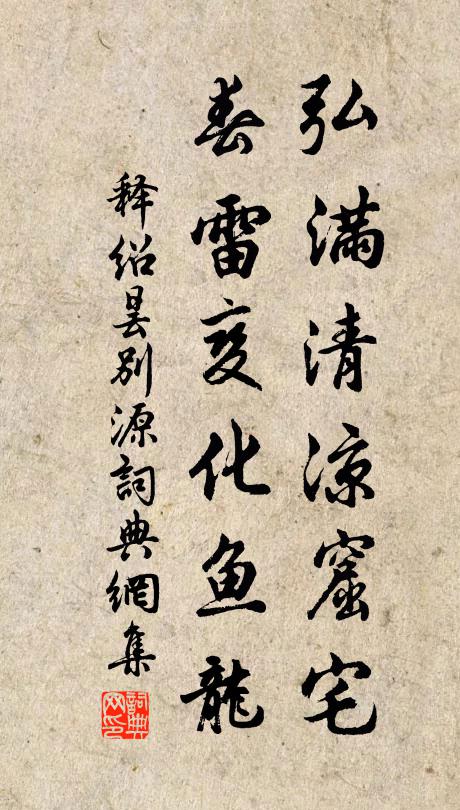 弘满清凉窟宅
春雷变化鱼龍
释绍昙别源詞典網集
詞典网印